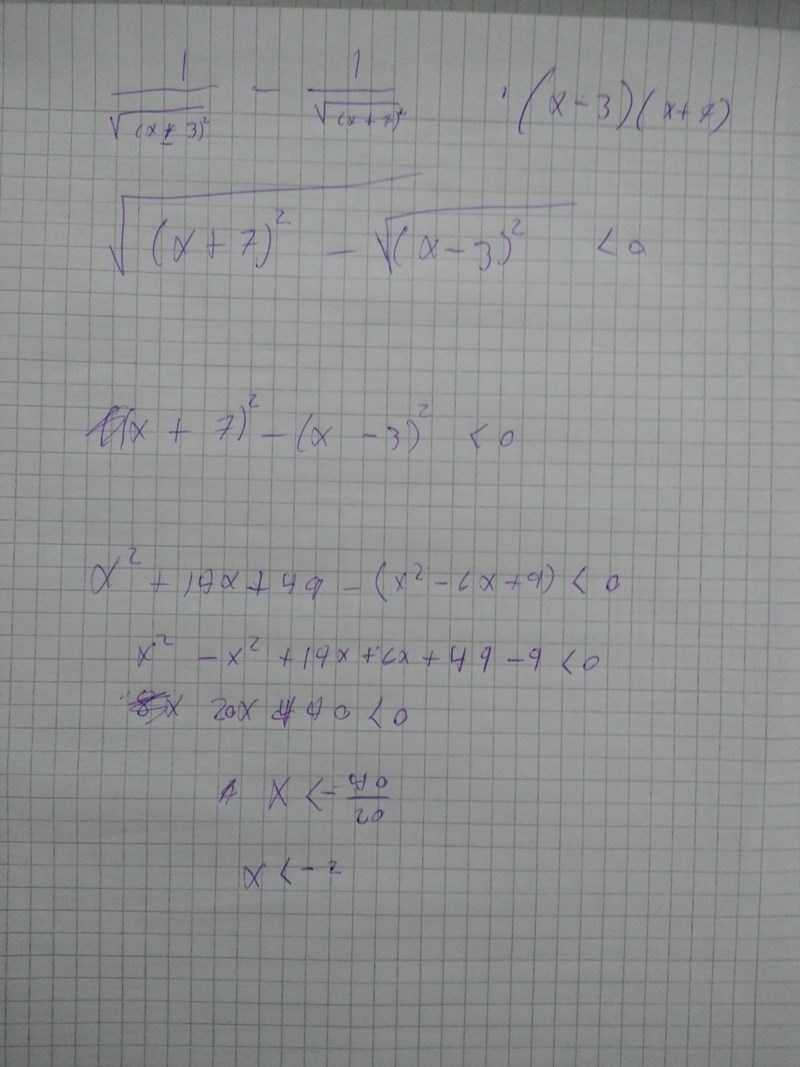 1/√(x-3)² - 1/√(x+7)² ·(x-3)(x+7)
√(x+7)² - √(x-3)² <0
(x + 7)² - (x - 3)² <0
x² + 14x + 49 - (x² - 6x + 9) < 0
x² - x² + 14x + 6x + 49 - 9 < 0
20x + 40 < 0
x < - 40/20
x < -2